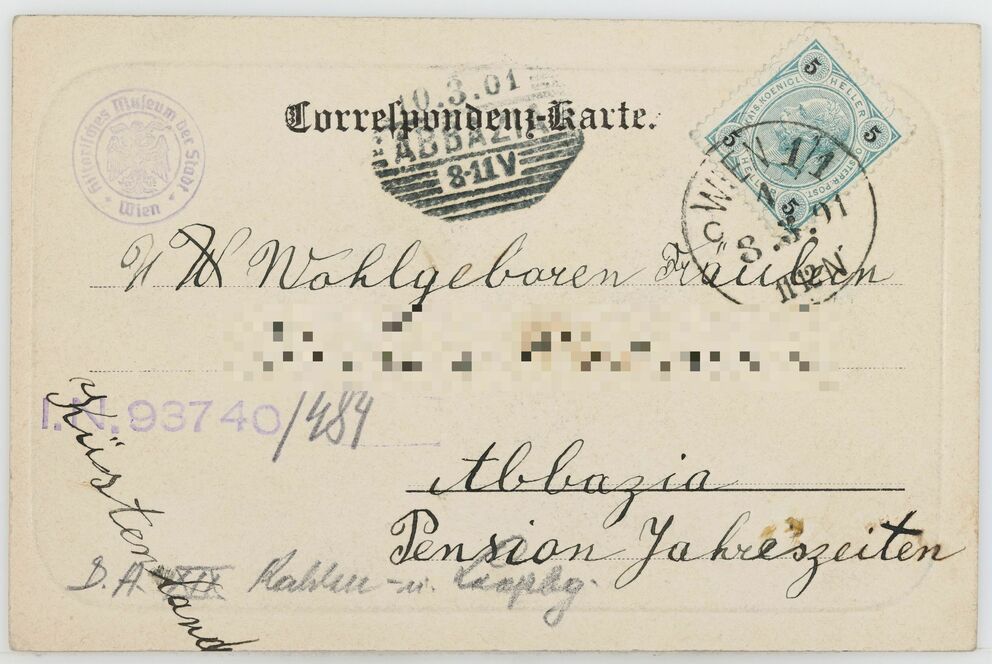 Historisches Museum der Stadt
Wien
Correspondenz-Karte.
10.3.01
ABBAZIA
8-11V
5
5
5
5
KAIS. KOENIGL.
HELLER
OSTERR. POST
WIEN 1/1
8.3.01
11-12 N
Wohlgeboren Fräulein
I.N. 93740/484
Abbazia
Pension Jahreszeiten
Küstenland
D.A. XIX Kahlen- u.